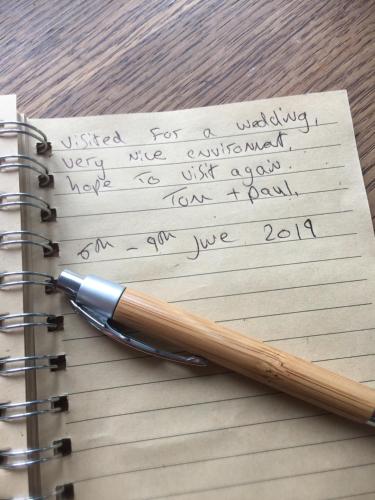 visited for a wedding,
very nice enviromat,
hope to visit again.
Tom + Paul.
6th - 9th June 2019